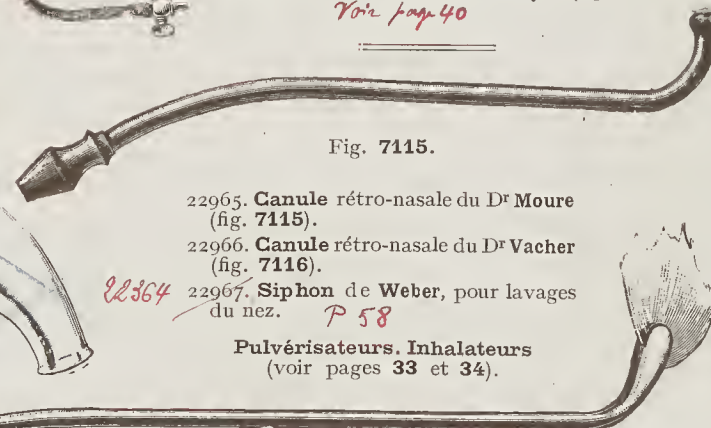 Voir page 40
Fig. 7115.
22965. Canule rétro-nasale du Dr Moure
(fig. 7115).
22966. Canule rétro-nasale du Dr Vacher
(fig. 7116).
22364 22967. Siphon de Weber, pour lavages
du nez. P 58
Pulvérisateurs. Inhalateurs
(voir pages 33 et 34).